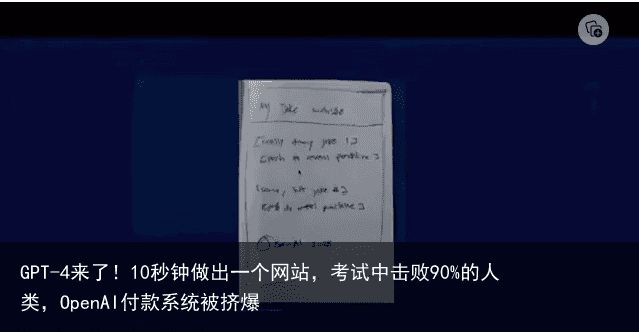 My Joke Website
[really funny joke!]
[push to reveal punchline]
GPT-4来了！10秒钟做出一个网站，考试中击败90%的人
类，OpenAI付款系统被挤爆